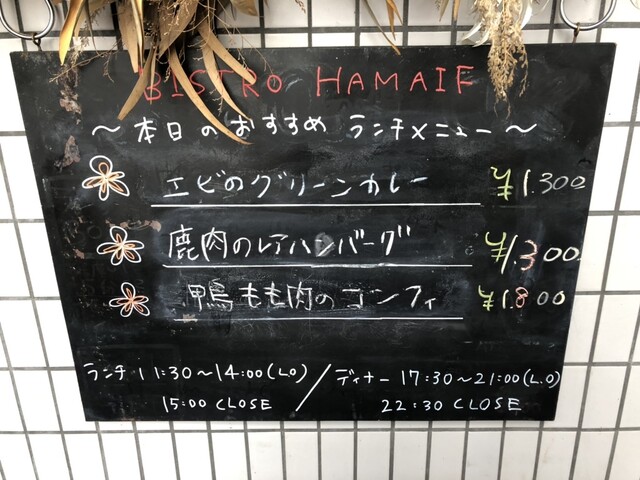 BISTRO HAMAIF
～本日のおすすめ ランチメニュー～
エビのグリーンカレー ¥1.300
鹿肉のレアハンバーグ ¥1.300
鴨もも肉のコンフィ ¥1.800
ランチ 11:30～14:00(LO) / ディナー 17:30～21:00(L.O)
15:00 CLOSE 22:30 CLOSE